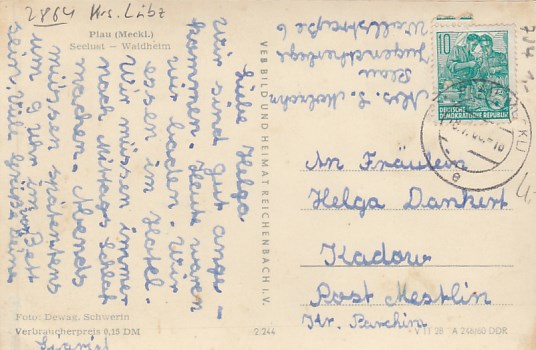 2864 Krs. Lübz
Plau (Meckl.)
Seelust – Waldheim
Liebe Helga
wir sind gut ange-
kommen. Heute waren
wir baden. Wir
essen im Hotel.
Wir müssen immer
nach Mittag Schlaf
machen. Abends
müssen spätestens
um 9 Uhr im Bett
sein. Viele Grüße
Foto: Dewag, Schwerin
Verbraucherpreis 0,15 DM
VEB BILD UND HEIMAT REICHENBACH I. V.
2.244
Plau
Jugendherberge
Wallstraße 6
10
DEUTSCHE
DEMOKRATISCHE REPUBLIK
An Fräulein
Helga Dankert
Kadow
Post Mestlin
Kr. Parchim
V 11 28 A 246/60 DDR